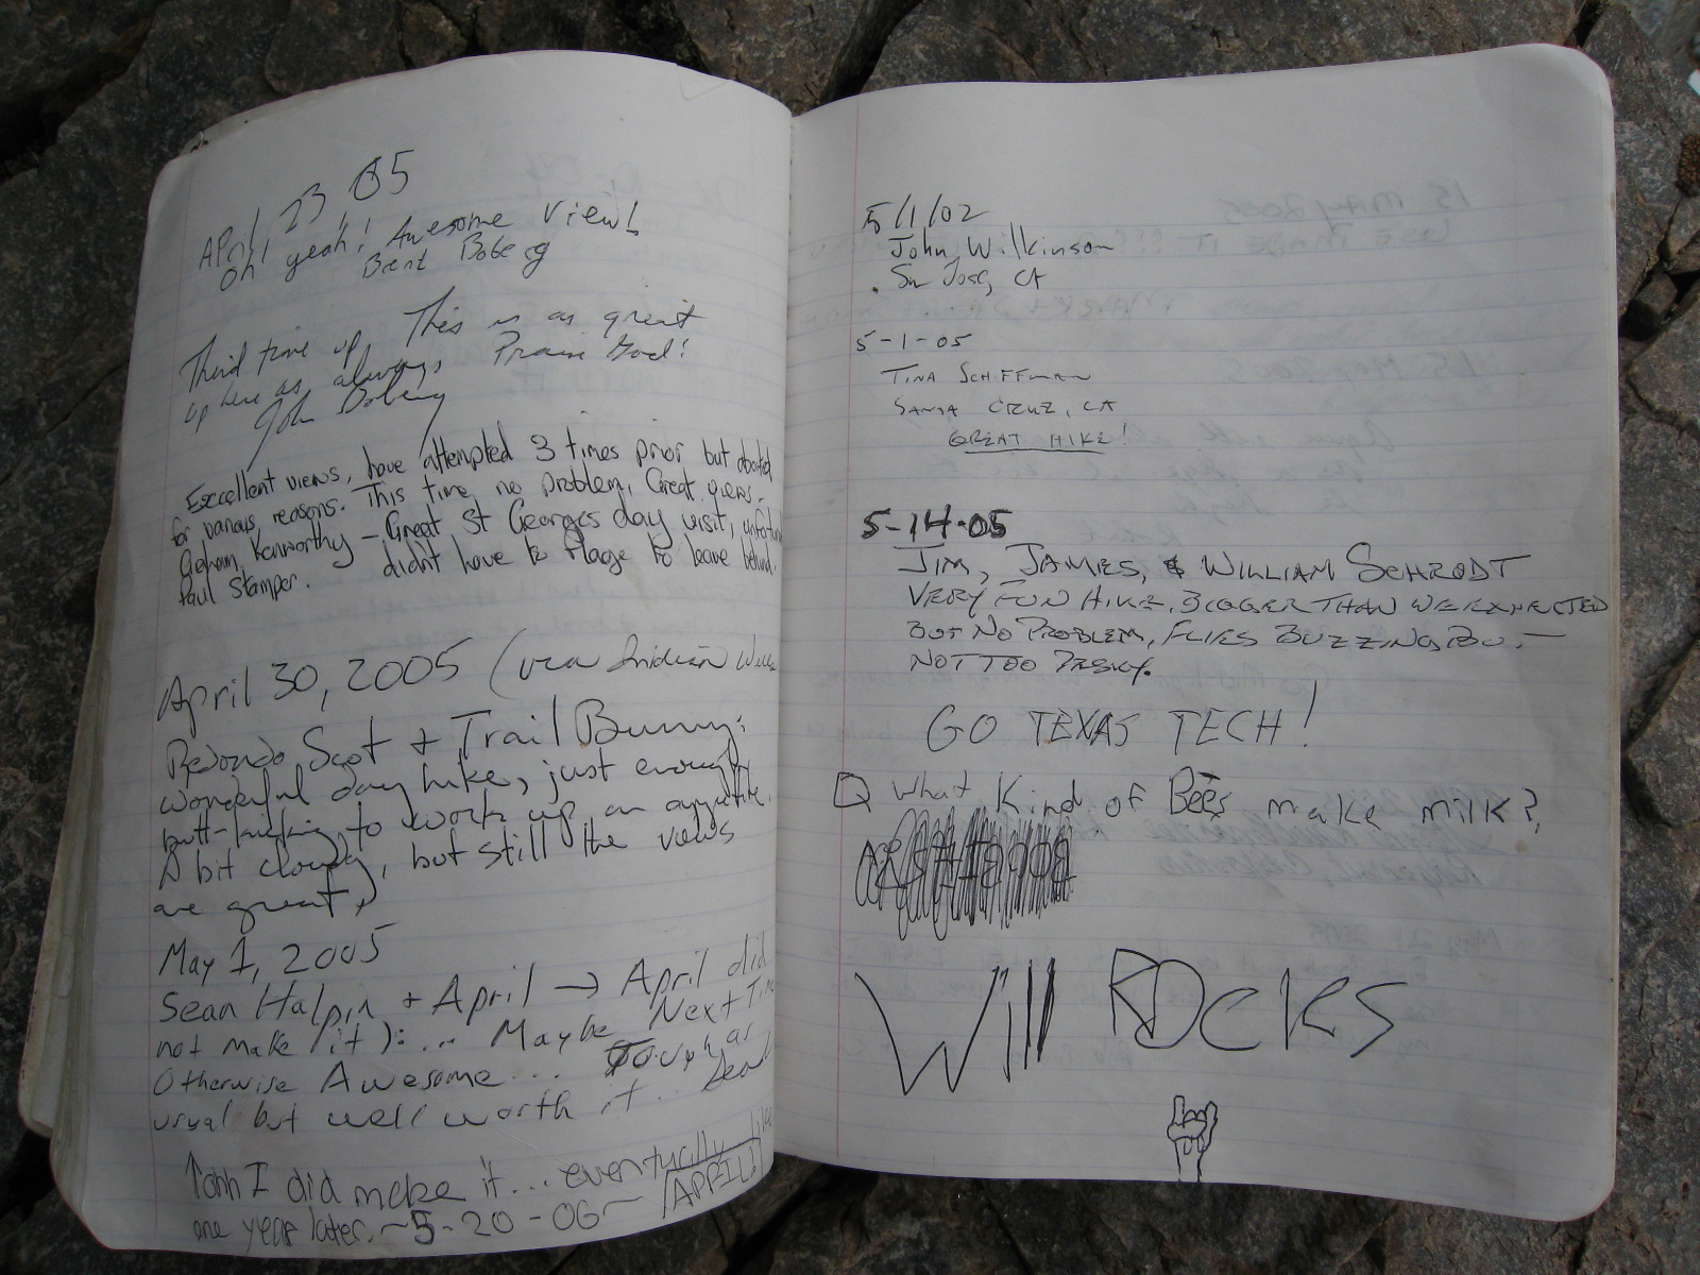 April, 23 05
Oh yeah! Awesome View!
Brent Boberg
Third time up, This is as great
up here as always, Praise God!
John
Excellent views, have attempted 3 times prior but aborted
for various reasons. This time no problem, Great views.
Graham Kenworthy - Great St Georges day visit,
Paul Stamper. didnt have to flage to leave behind.
April 30, 2005 (via Indian Wells
Redondo Scot + Trail Bunny:
wonderful day hike, just enough
butt-kicking to work up an appetite.
A bit cloudy, but still the views
are great.
May 1, 2005
Sean Halpin + April → April did
not make it ): ... Maybe Next Time
Otherwise Awesome... Tough as
usual but well worth it.. Sean
↑ ohh I did make it... eventually like
one year later. ~ 5-20-06 ~ /APRIL!!
5/1/02
John Wilkinson
San Jose, CA
5-1-05
TINA SCHIFFMAN
SANTA CRUZ, CA
GREAT HIKE!
5-14-05
JIM, JAMES, & WILLIAM SCHRODT
VERY FUN HIKE, BIGGER THAN WE EXPECTED
BUT NO PROBLEM, FLIES BUZZING BOU. -
NOT TOO PESKY.
GO TEXAS TECH!
Q What Kind of Bees make milk?
Will ROcks